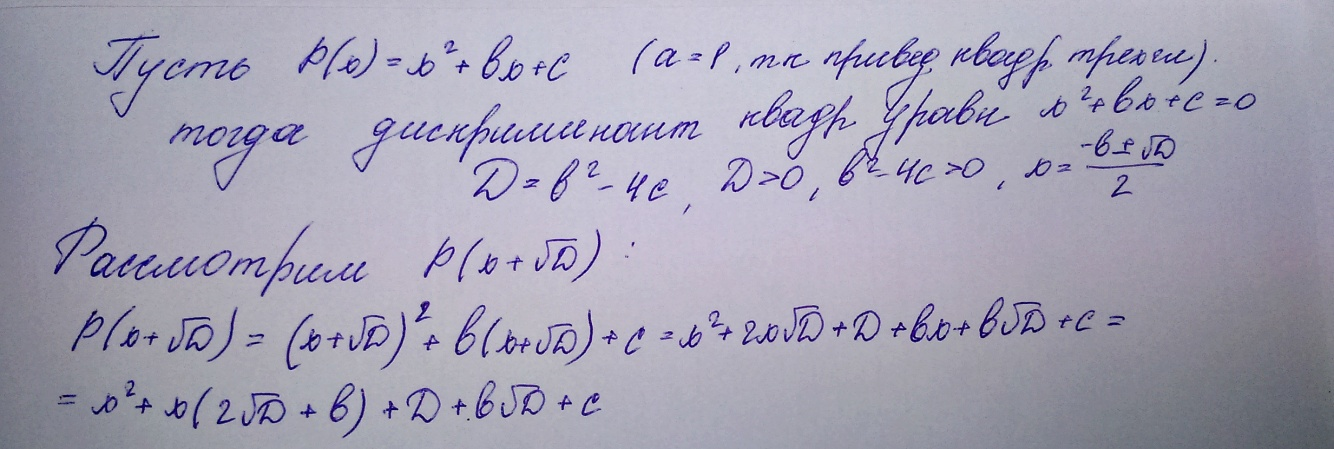 Пусть P(x) = x² + bx + c (a = 1, т к привед квадр трехчл).
тогда дискриминант квадр уравн x² + bx + c = 0
D = b² - 4c, D > 0, b² - 4c > 0, x = (-b ± √D)/2
Рассмотрим P(x + √D):
P(x + √D) = (x + √D)² + b(x + √D) + c = x² + 2x√D + D + bx + b√D + c =
= x² + x(2√D + b) + D + b√D + c